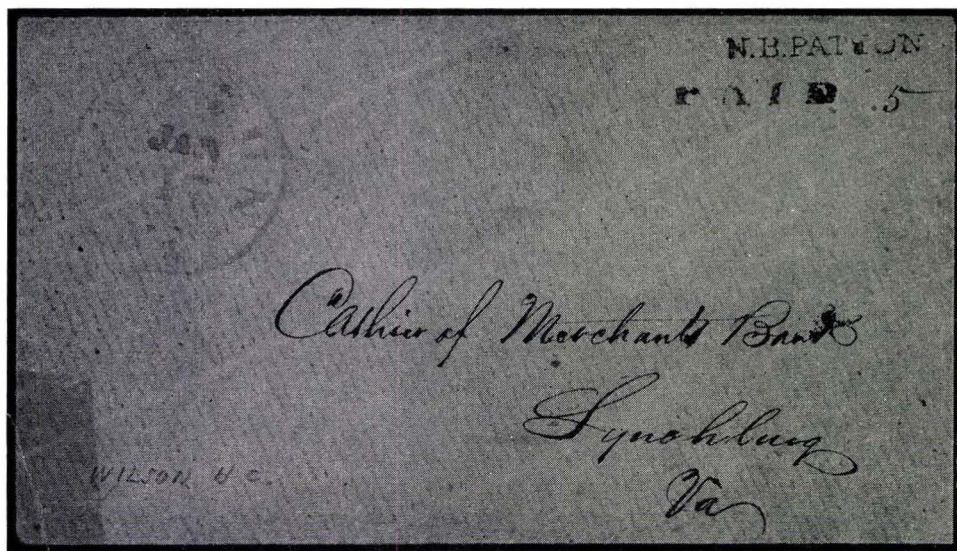 N.B.PATTON
PAID 5
Cashier of Merchants Bank
Lynchburg
Va
WILSON N C.